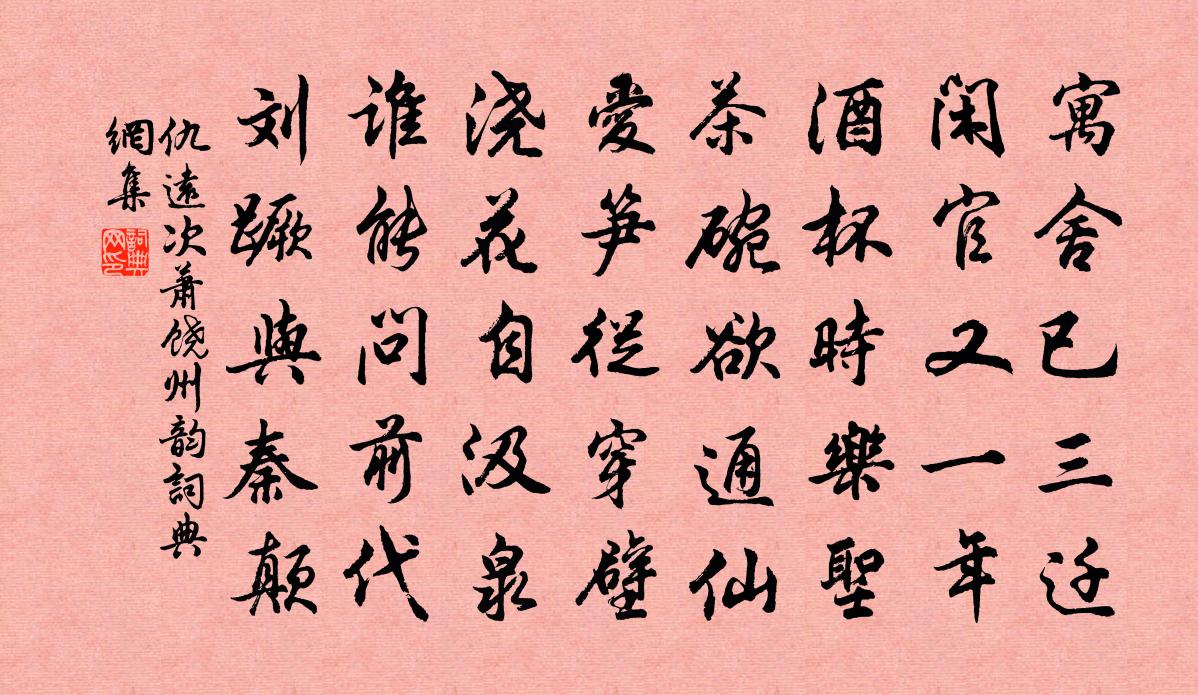 寓舍已三迁
闲官又一年
酒杯時樂聖
茶碗欲通仙
愛笋從穿壁
浇花自汲泉
谁能问前代
刘蹶與秦颠
仇遠次萧饶州韵詞典
網集
詞典網印